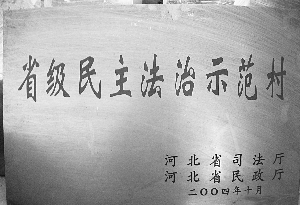 省级民主法治示范村
河北省司法厅
河北省民政厅
二〇〇四年十月